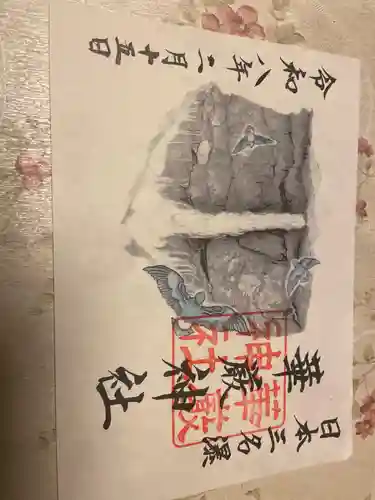 日本三名瀑
華厳神社
華厳
神社
令和八年二月十五日